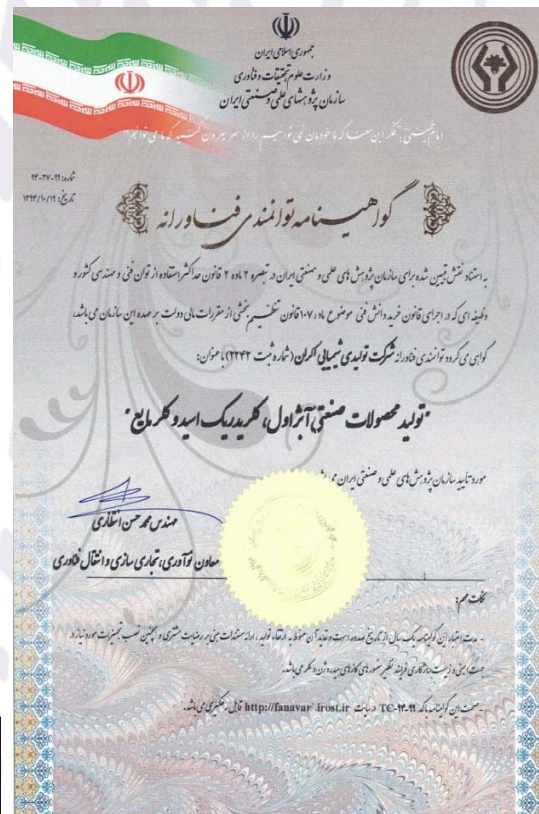 جمهوری اسلامی ایران
وزارت علوم، تحقیقات و فناوری
سازمان پژوهشهای علمی و صنعتی ایران
امام خمینی: فکر این معنا که ما خودمان نمی توانیم را از سر بیرون کنید که ما می توانیم
شماره: ۹۴-۲۷-۹۹
تاریخ: ۱۳۹۴/۱۰/۱۹
گواهینامه توانمندی فناورانه
به استناد نقش تبیین شده برای سازمان پژوهش های علمی و صنعتی ایران در تبصره ۲ ماده ۲ قانون حداکثر استفاده از توان فنی و مهندسی کشور و
وظیفه ای که در اجرای قانون خرید دانش فنی موضوع ماده ۱۰۷ قانون تنظیم بخشی از مقررات مالی دولت بر عهده این سازمان می باشد،
گواهی می گردد توانمندی فناورانه شرکت تولیدی شیمیایی کلران (شماره ثبت ۲۲۴۲) با عنوان:
"تولید محصولات صنعتی آب ژاول، کلریدریک اسید و کلر مایع"
مورد تأیید سازمان پژوهش های علمی و صنعتی ایران می باشد
مهندس محمد حسن انتظاری
معاون نوآوری، تجاری سازی و انتقال فناوری
نکات مهم:
- مدت اعتبار این گواهینامه یک سال از تاریخ صدور است و تمدید آن منوط به ارتقاء تولید، ارائه مستندات مبنی بر رضایت مشتری و همچنین نصب تجهیزات مورد نیاز در
جهت ایمنی و زیست سازگاری فرایند نظیر سنسورهای گازهای هیدروژن و کلر می باشد.
- صحت این گواهینامه با کد TC-94-99 در سایت http://fanavari.irost.ir قابل رهگیری می باشد.